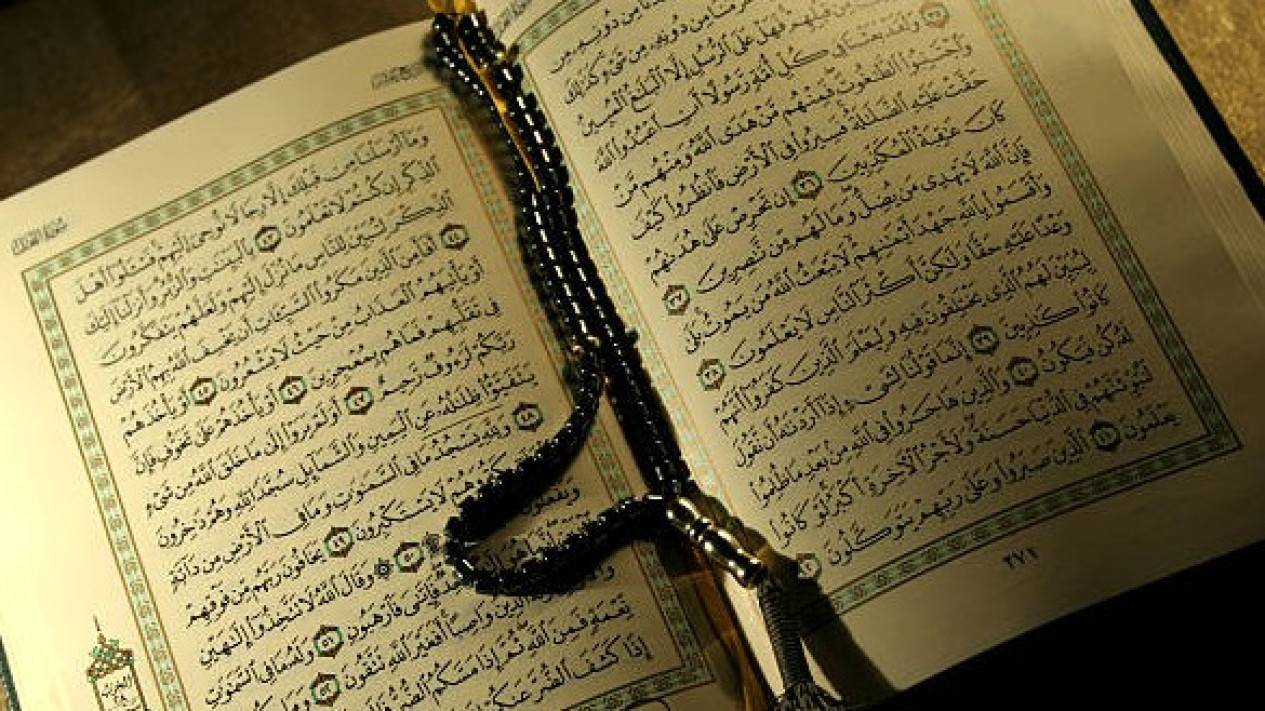 مِن دُونِهِۦ مِن
حَرَّمْنَا مِن دُونِهِۦ مِن شَىْءٍ كَذَٰلِكَ
مِن قَبْلِهِمْ فَهَلْ عَلَى ٱلرُّسُلِ إِلَّا ٱلْبَلَٰغُ ٱلْمُبِينُ
٣٥ وَلَقَدْ بَعَثْنَا فِى كُلِّ أُمَّةٍ رَّسُولًا أَنِ ٱعْبُدُوا۟ ٱللَّهَ
وَٱجْتَنِبُوا۟ ٱلطَّٰغُوتَ فَمِنْهُم مَّنْ هَدَى ٱللَّهُ وَمِنْهُم مَّنْ
حَقَّتْ عَلَيْهِ ٱلضَّلَٰلَةُ فَسِيرُوا۟ فِى ٱلْأَرْضِ فَٱنظُرُوا۟ كَيْفَ
كَانَ عَٰقِبَةُ ٱلْمُكَذِّبِينَ ٣٦ إِن تَحْرِصْ عَلَىٰ هُدَىٰهُمْ
فَإِنَّ ٱللَّهَ لَا يَهْدِى مَن يُضِلُّ وَمَا لَهُم مِّن نَّٰصِرِينَ ٣٧
وَأَقْسَمُوا۟ بِٱللَّهِ جَهْدَ أَيْمَٰنِهِمْ لَا يَبْعَثُ ٱللَّهُ مَن يَمُوتُ بَلَىٰ
وَعْدًا عَلَيْهِ حَقًّا وَلَٰكِنَّ أَكْثَرَ ٱلنَّاسِ لَا يَعْلَمُونَ ٣٨
لِيُبَيِّنَ لَهُمُ ٱلَّذِى يَخْتَلِفُونَ فِيهِ وَلِيَعْلَمَ ٱلَّذِينَ كَفَرُوٓا۟ أَنَّهُمْ
كَانُوا۟ كَٰذِبِينَ ٣٩ إِنَّمَا قَوْلُنَا لِشَىْءٍ إِذَآ أَرَدْنَٰهُ أَن نَّقُولَ
لَهُۥ كُن فَيَكُونُ ٤٠ وَٱلَّذِينَ هَاجَرُوا۟ فِى ٱللَّهِ مِنۢ بَعْدِ مَا ظُلِمُوا۟
لَنُبَوِّئَنَّهُمْ فِى ٱلدُّنْيَا حَسَنَةً وَلَأَجْرُ ٱلْءَاخِرَةِ أَكْبَرُ لَوْ كَانُوا۟
يَعْلَمُونَ ٤١ ٱلَّذِينَ صَبَرُوا۟ وَعَلَىٰ رَبِّهِمْ يَتَوَكَّلُونَ
٢٧١
وَمَآ أَرْسَلْنَا مِن قَبْلِكَ إِلَّا رِجَالًا نُّوحِىٓ إِلَيْهِمْ فَسْـَٔلُوٓا۟ أَهْلَ
ٱلذِّكْرِ إِن كُنتُمْ لَا تَعْلَمُونَ ٤٣ بِٱلْبَيِّنَٰتِ وَٱلزُّبُرِ وَأَنزَلْنَآ إِلَيْكَ
ٱلذِّكْرَ لِتُبَيِّنَ لِلنَّاسِ مَا نُزِّلَ إِلَيْهِمْ وَلَعَلَّهُمْ يَتَفَكَّرُونَ
٤٤ أَفَأَمِنَ ٱلَّذِينَ مَكَرُوا۟ ٱلسَّيِّـَٔاتِ أَن يَخْسِفَ ٱللَّهُ بِهِمُ ٱلْأَرْضَ
أَوْ يَأْتِيَهُمُ ٱلْعَذَابُ مِنْ حَيْثُ لَا يَشْعُرُونَ ٤٥ أَوْ يَأْخُذَهُمْ
فِى تَقَلُّبِهِمْ فَمَا هُم بِمُعْجِزِينَ ٤٦ أَوْ يَأْخُذَهُمْ عَلَىٰ تَخَوُّفٍ فَإِنَّ
رَبَّكُمْ لَرَءُوفٌ رَّحِيمٌ ٤٧ أَوَلَمْ يَرَوْا۟ إِلَىٰ مَا خَلَقَ ٱللَّهُ مِن شَىْءٍ
يَتَفَيَّؤُا۟ ظِلَٰلُهُۥ عَنِ ٱلْيَمِينِ وَٱلشَّمَآئِلِ سُجَّدًا لِّلَّهِ وَهُمْ دَٰخِرُونَ
٤٨ وَلِلَّهِ يَسْجُدُ مَا فِى ٱلسَّمَٰوَٰتِ وَمَا فِى ٱلْأَرْضِ مِن دَآبَّةٍ
وَهُمْ لَا يَسْتَكْبِرُونَ ٤٩ يَخَافُونَ رَبَّهُم مِّن فَوْقِهِمْ
وَيَفْعَلُونَ ٥٠ ۞ وَقَالَ ٱللَّهُ لَا تَتَّخِذُوٓا۟ إِلَٰهَيْنِ
إِنَّمَا هُوَ فَإِيَّٰىَ فَٱرْهَبُونِ ٥١ وَلَهُۥ مَا فِى ٱلسَّمَٰوَٰتِ
ٱلدِّينُ وَاصِبًا أَفَغَيْرَ ٱللَّهِ تَتَّقُونَ ٥٢ وَمَا بِكُم
نِّعْمَةٍ فَمِنَ ٱللَّهِ ثُمَّ إِذَا مَسَّكُمُ ٱلضُّرُّ
إِذَا كَشَفَ ٱلضُّرَّ عَنكُمْ